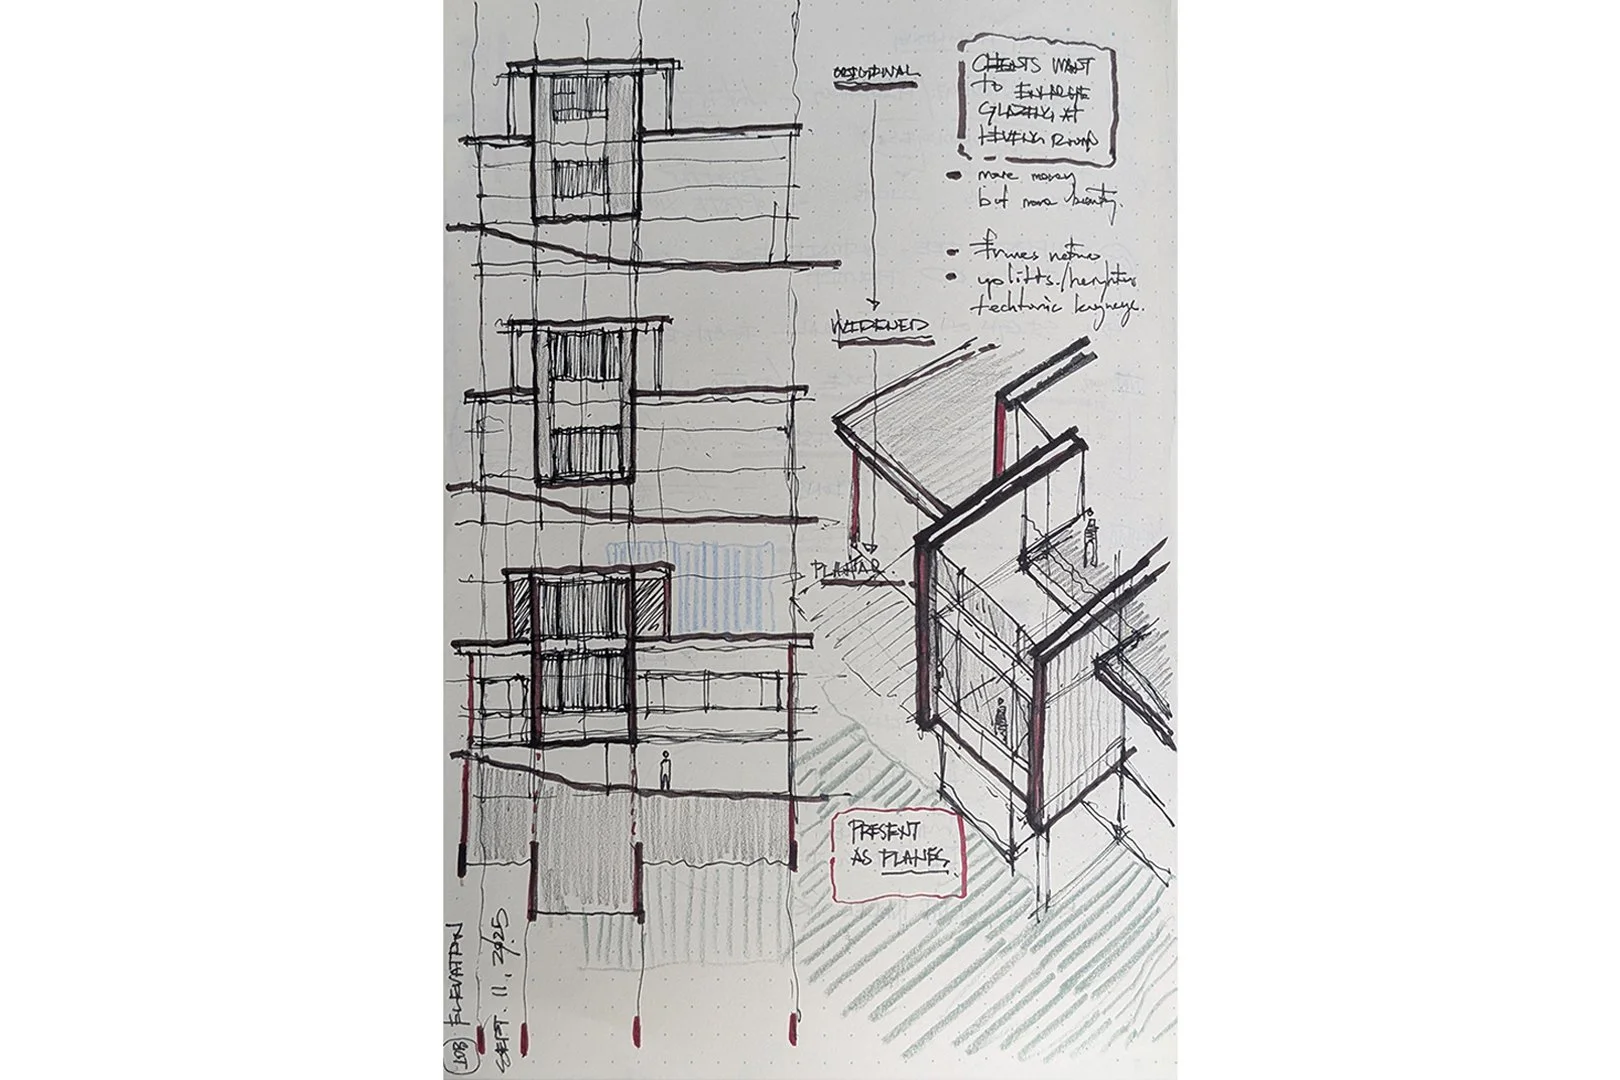 ORIGINAL
CLIENTS WANT
TO ENLARGE
GLAZING AT
LIVING ROOM
more money
but more beauty.
frames nature
uplifts/heightens
techtonic language.
WIDENED
PLANAR
PRESENT
AS PLANES
ELEVATION
SEPT. 11, 2025